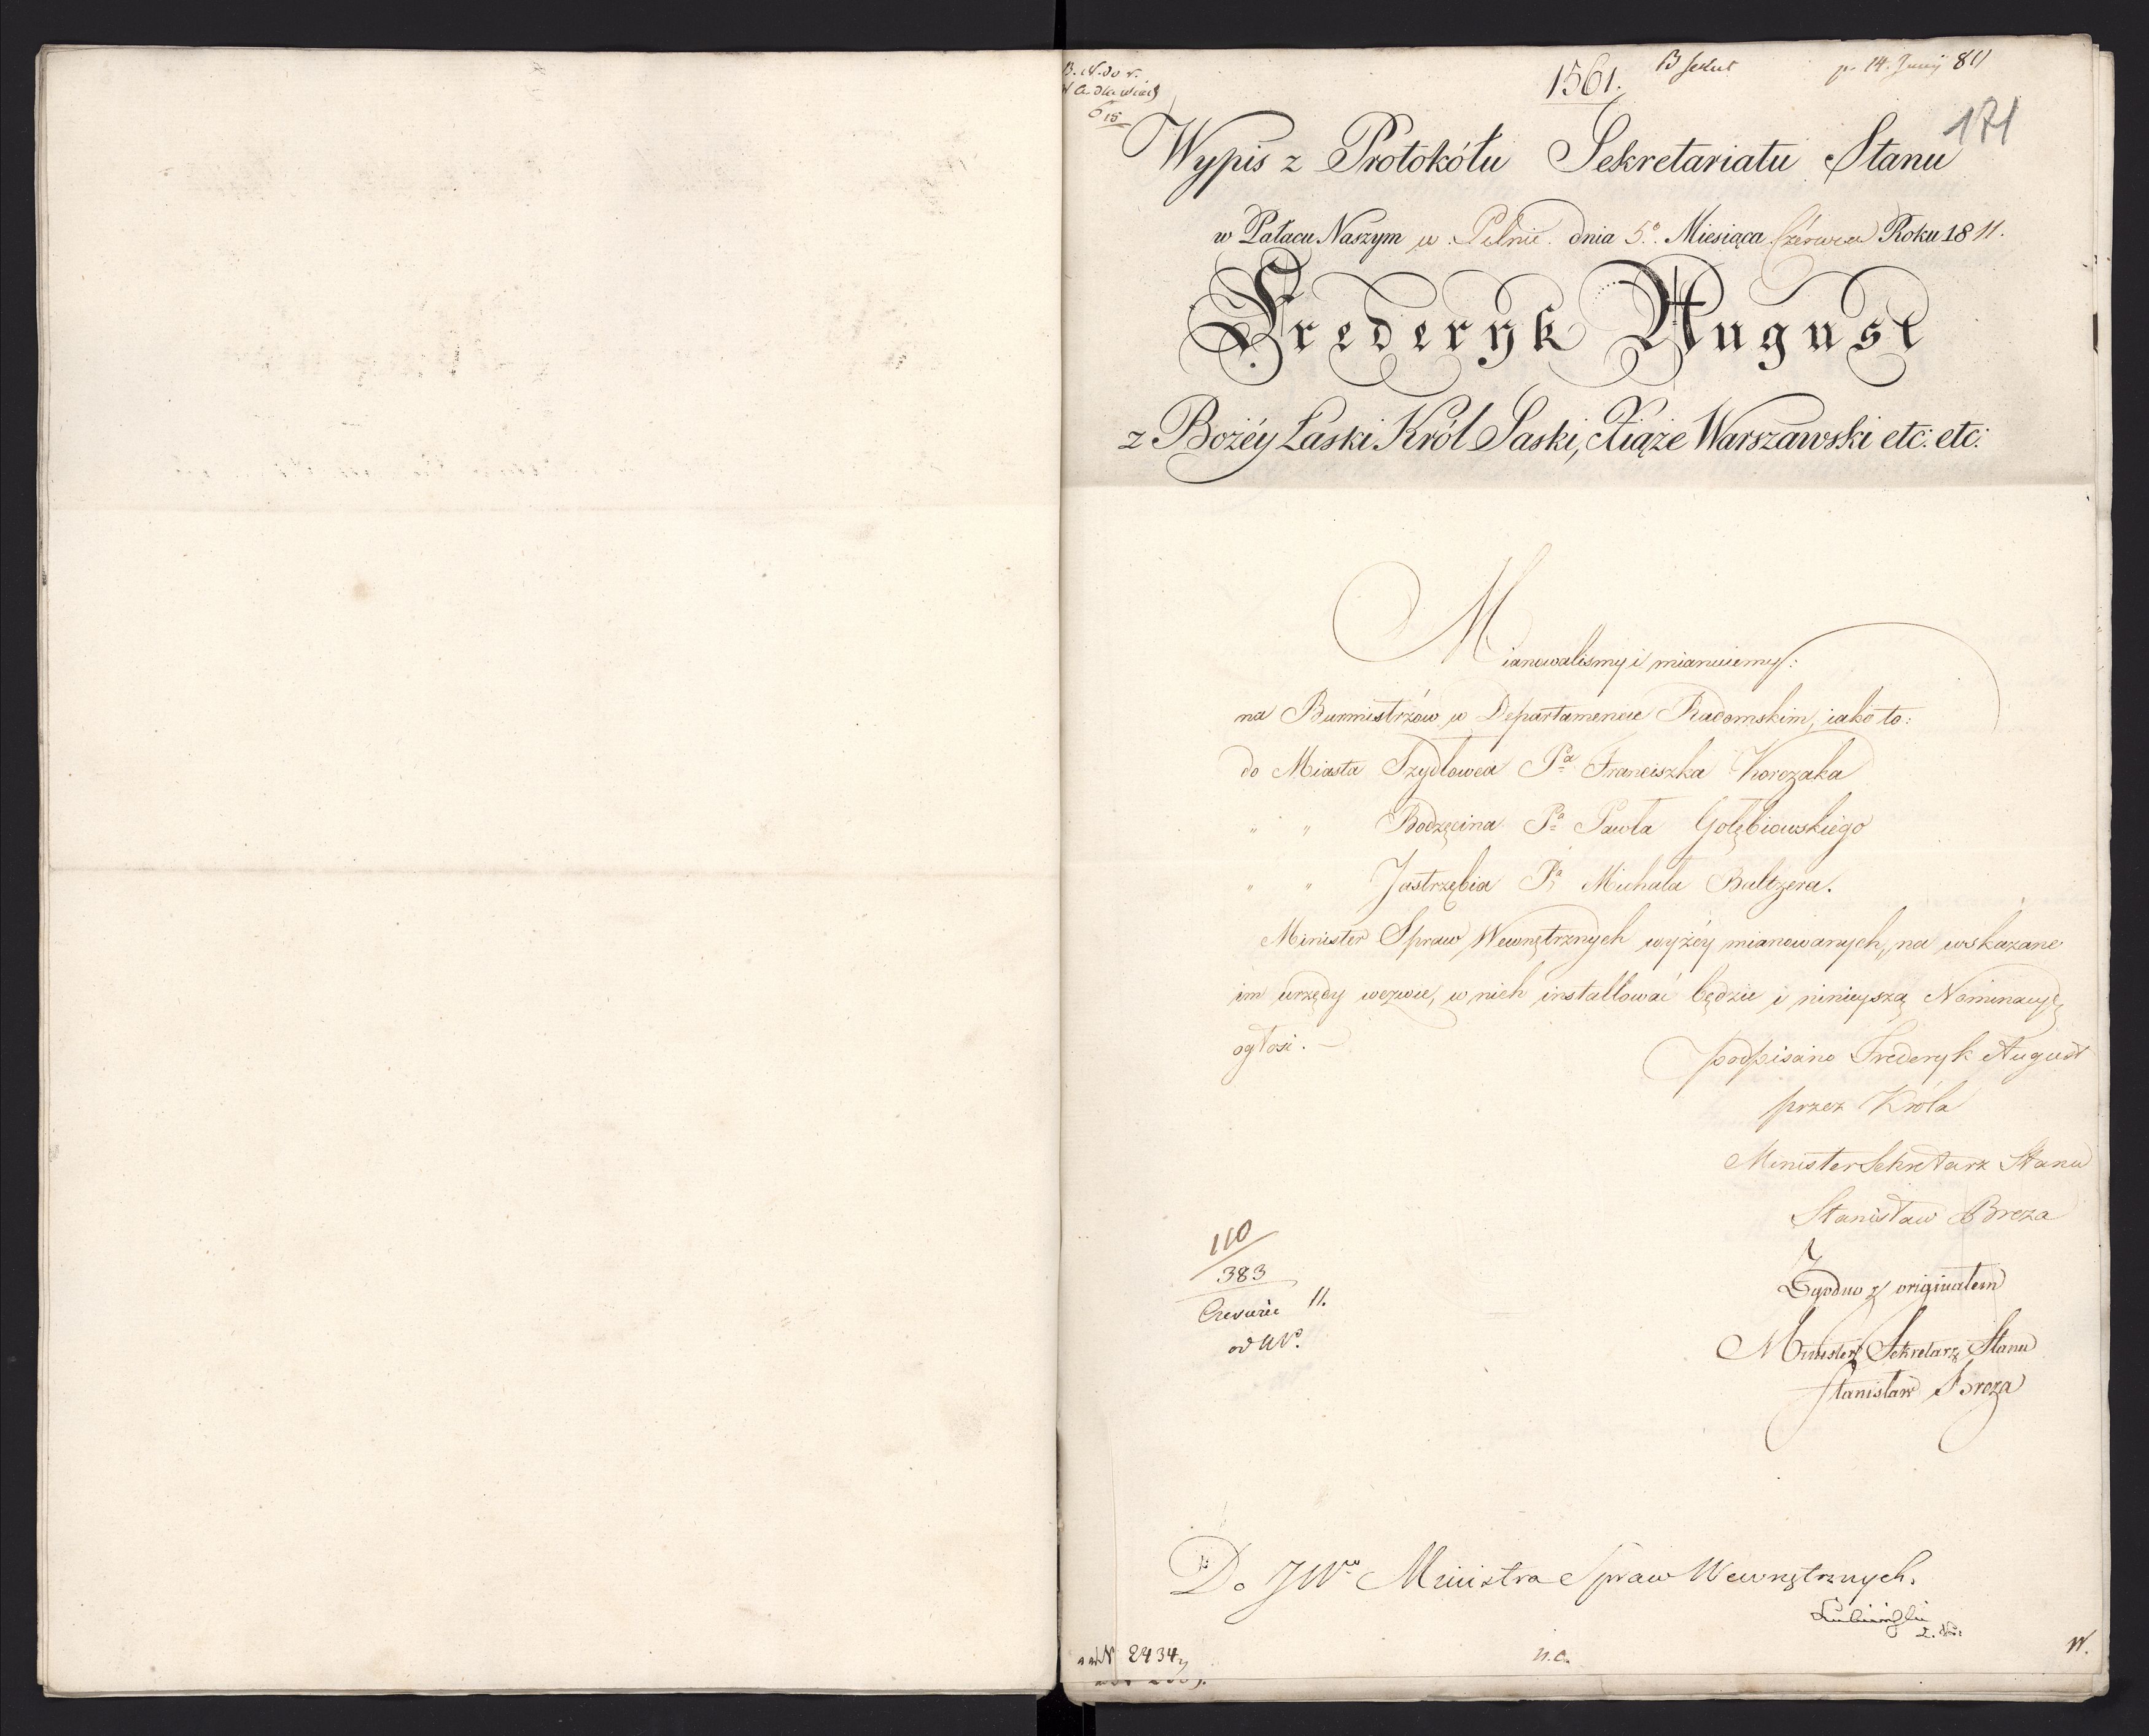 1561.
p. 14. Junij 811
171
615
Wypis z Protokółu Sekretariatu Stanu
w Pałacu Naszym w Pilnic dnia 5o. Miesiąca Czerwca Roku 1811.
Frederyk August
z Bożéy Łaski Król Saski, Xiąże Warszawski etc: etc:
Mianowalismy i mianuiemy:
na Burmistrzów w Departamencie Radomskim, iako to:
do Miasta Szydłowca Pa Franciszka Korczaka
" " Bodzęcina Pa Pawła Gołębiowskiego
" " Jastrzębia Pa Michała Baltzera.
Minister Spraw Wewnętrznych wyżéy mianowanych, na wskazane
im urzędy wezwie, w nich installować będzie i ninieyszą Nominacyę
ogłosi. —
podpisano Frederyk August
przez Króla
Minister Sekretarz Stanu
Stanisław Breza
Zgodno z originałem
Minister Sekretarz Stanu
Stanisław Breza
110
383
Czerwie 11.
Do JWo Ministra Spraw Wewnętrznych.
N 2434
n.a.
W.